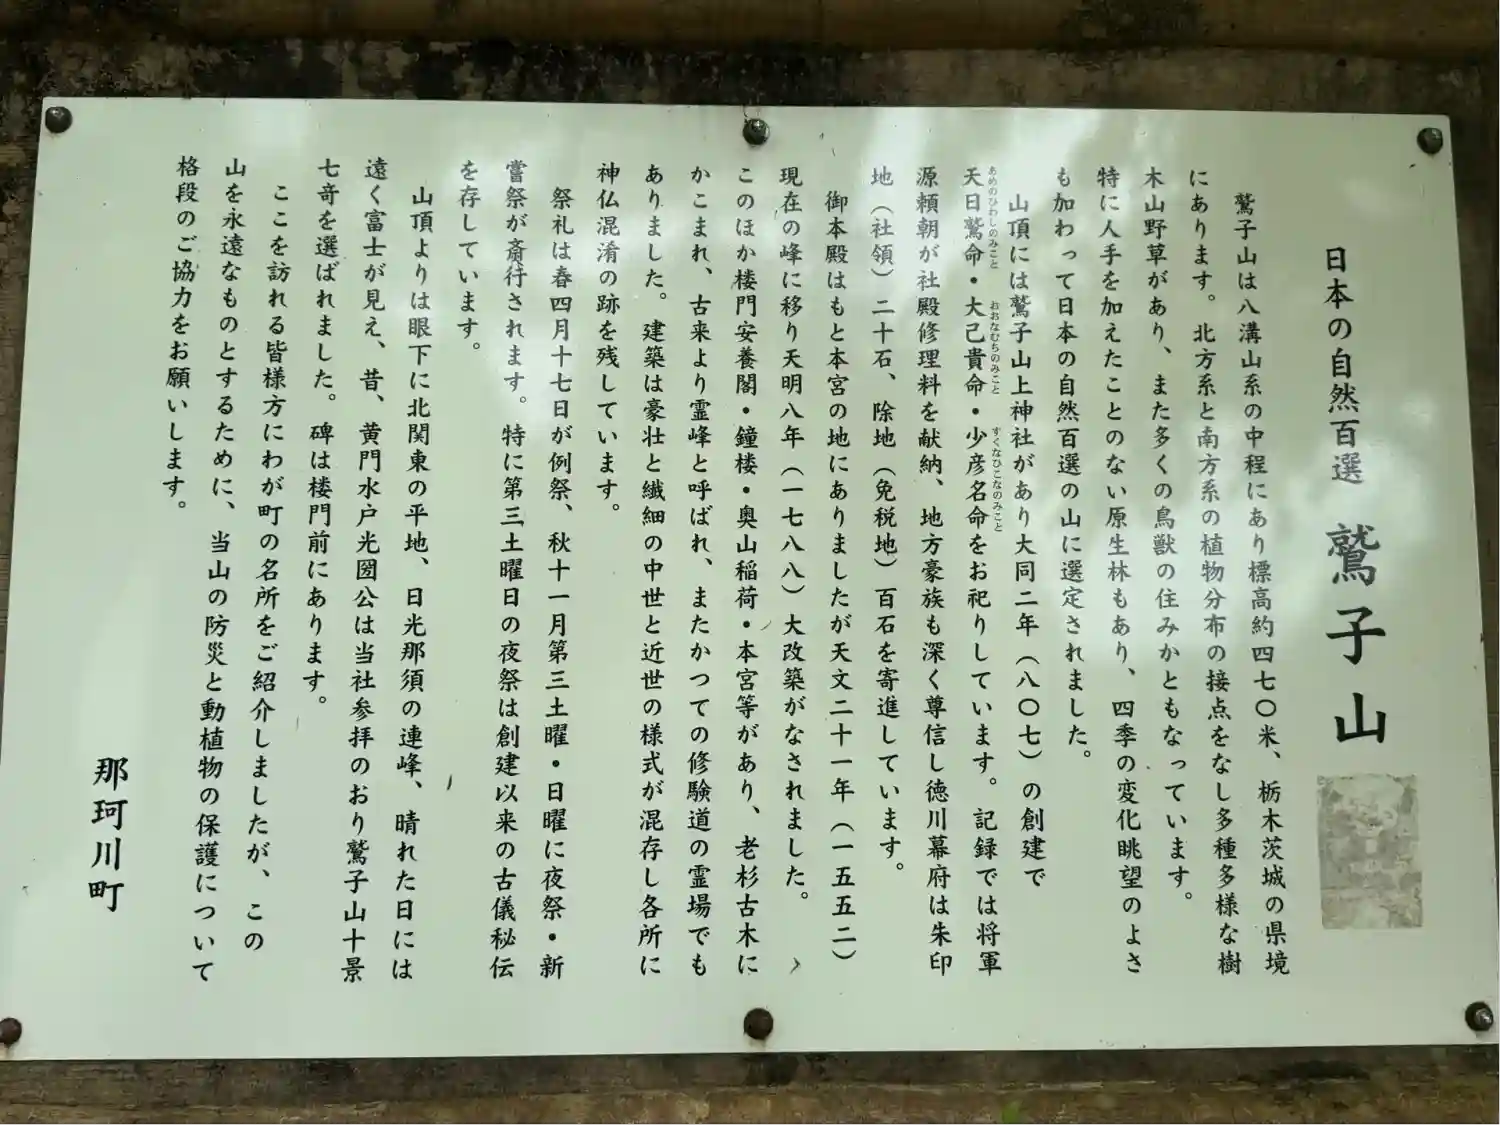 日本の自然百選　鷲子山
鷲子山は八溝山系の中程にあり標高約四七〇米、栃木茨城の県境
にあります。北方系と南方系の植物分布の接点をなし多種多様な樹
木山野草があり、また多くの鳥獣の住みかともなっています。
特に人手を加えたことのない原生林もあり、四季の変化眺望のよさ
も加わって日本の自然百選の山に選定されました。
山頂には鷲子山上神社があり大同二年（八〇七）の創建で
天日鷲命・大己貴命・少彦名命をお祀りしています。記録では将軍
あめのひわしのみこと　おおなむちのみこと　すくなひこなのみこと
源頼朝が社殿修理料を献納、地方豪族も深く尊信し徳川幕府は朱印
地（社領）二十石、除地（免税地）百石を寄進しています。
御本殿はもと本宮の地にありましたが天文二十一年（一五五二）
現在の峰に移り天明八年（一七八八）大改築がなされました。
このほか楼門安養閣・鐘楼・奥山稲荷・本宮等があり、老杉古木に
かこまれ、古来より霊峰と呼ばれ、またかつての修験道の霊場でも
ありました。建築は豪壮と繊細の中世と近世の様式が混存し各所に
神仏混淆の跡を残しています。
祭礼は春四月十七日が例祭、秋十一月第三土曜・日曜に夜祭・新
嘗祭が斎行されます。特に第三土曜日の夜祭は創建以来の古儀秘伝
を存しています。
山頂よりは眼下に北関東の平地、日光那須の連峰、晴れた日には
遠く富士が見え、昔、黄門水戸光圀公は当社参拝のおり鷲子山十景
七奇を選ばれました。碑は楼門前にあります。
ここを訪れる皆様方にわが町の名所をご紹介しましたが、この
山を永遠なものとするために、当山の防災と動植物の保護について
格段のご協力をお願いします。
那珂川町